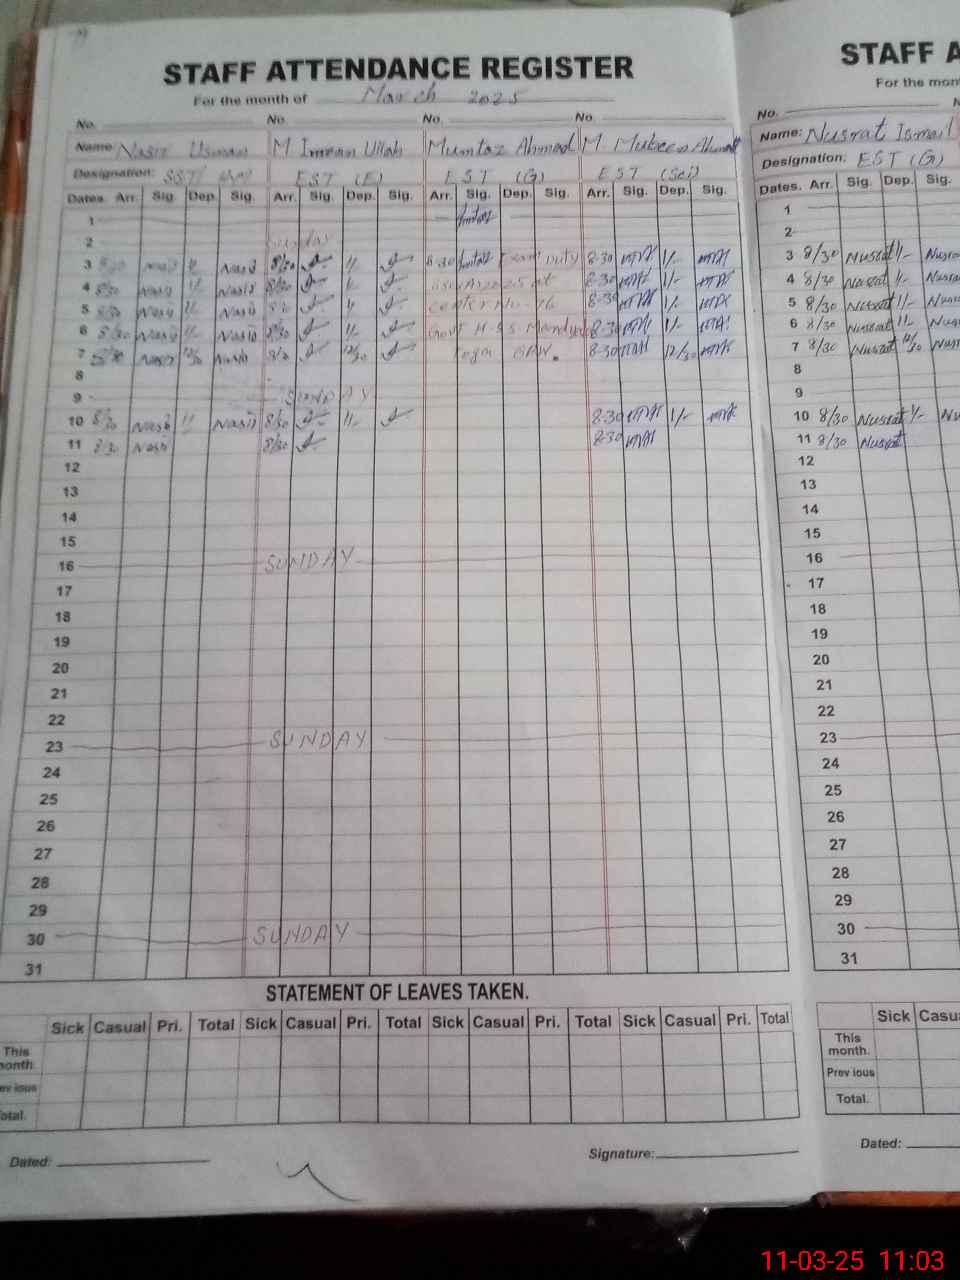 STAFF ATTENDANCE REGISTER
For the month of March 2025
No. No. No. No.
Name: Nasir Usman M Imran Ullah Mumtaz Ahmad M. Mubeen Ahmad
Designation: SST EST (E) EST (G) EST (Sci)
Dates. Arr. Sig. Dep. Sig. Arr. Sig. Dep. Sig. Arr. Sig. Dep. Sig. Arr. Sig. Dep. Sig.
1
2 Sunday
3 8/30 Nasir 1/- Nasir 8/30 1/- 8-30 Exam Duty 8-30 1/-
4 8/30 Nasir 1/- Nasir 8/30 1/- at 8-30 1/-
5 8/30 Nasir 1/- Nasir 8/30 1/- center No. 8-30 1/-
6 8/30 Nasir 1/- Nasir 8/30 1/- Govt H.S.S 8-30 1/-
7 8/30 Nasir 12/30 Nasir 8/30 12/30 8-30 12/30
8
9 SUNDAY
10 8/30 Nasir 1/- Nasir 8/30 1/- 8-30 1/-
11 8/30 Nasir 8/30 8-30
12
13
14
15
16 SUNDAY
17
18
19
20
21
22
23 SUNDAY
24
25
26
27
28
29
30 SUNDAY
31
STATEMENT OF LEAVES TAKEN.
Sick Casual Pri. Total Sick Casual Pri. Total Sick Casual Pri. Total Sick Casual Pri. Total
This
month.
Prev ious
Total.
Dated: Signature:
STAFF A
For the mon
No. N
Name: Nusrat Ismail
Designation: EST (G)
Dates. Arr. Sig. Dep. Sig.
1
2
3 8/30 Nusrat 1/- Nusra
4 8/30 Nusrat 1/- Nusra
5 8/30 Nusrat 1/- Nusra
6 8/30 Nusrat 1/- Nusra
7 8/30 Nusrat 12/30 Nusr
8
9
10 8/30 Nusrat 1/- Nu
11 8/30 Nusrat
12
13
14
15
16
17
18
19
20
21
22
23
24
25
26
27
28
29
30
31
Sick Casu
This
month.
Prev ious
Total.
Dated:
11-03-25 11:03